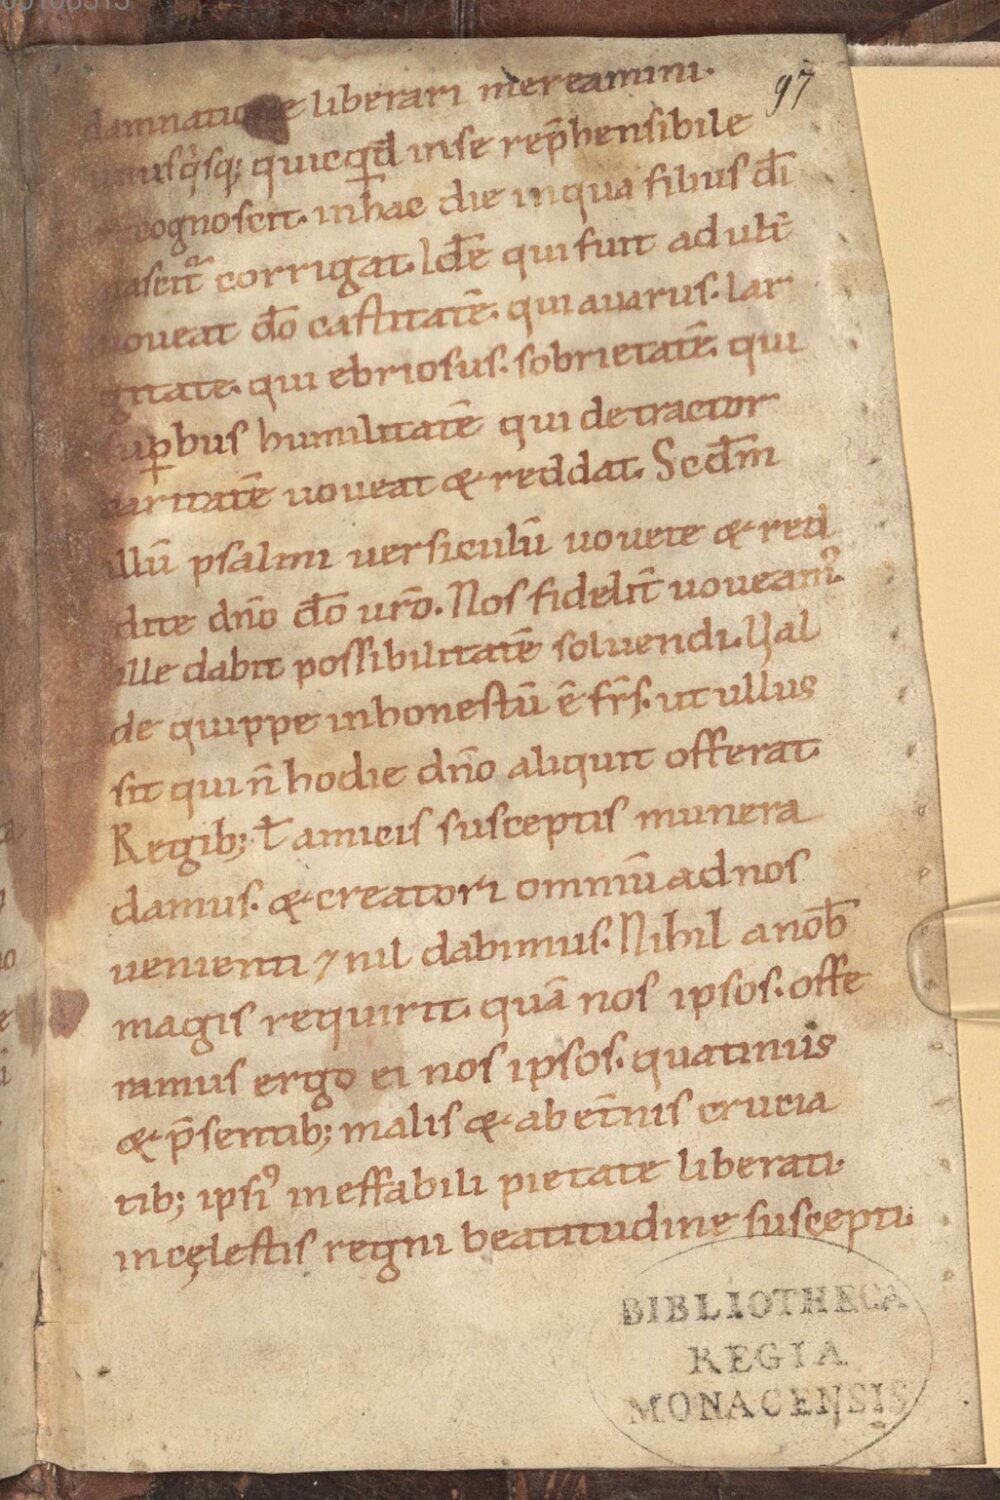 97
damnatione liberari mereamini.
unusq̇sq; quicqd̄ inse rep̄hensibile
cognoscit. inhac die inqua fibus dī
nascit᷑ corrigat. Idē qui fuit adult̄
voueat dō castitatē. qui auarus. lar
gitate. qui ebriosus. sobrietatē. qui
suꝑbus humilitatē qui detractor
caritatē uoueat & reddat. Scdm̄
illū psalmi uersiculū uouete & red
dite dn̄o dō ur̄o. Nos fidelit̄ uoueamꝰ.
ille dabit possibilitatē soluendi. Val
de quippe inhonestū ē fr̄s. ut ullus
sit qui n̄ hodie dn̄o aliquit offerat.
Regib; ł amicis susceptis munera
damus. & creatori omniū adnos
uenienti ⁊ nil dabimus. Nihil anob̄
magis requirit. quā nos ipsos. offe
ramus ergo ei nos ipsos. quatinus
& p̄sentib; malis & ab et̄nis crucia
tib; ipsiꝰ ineffabili pietate liberati.
incęlestis regni beatitudine suscepti.
BIBLIOTHECA
REGIA
MONACENSIS